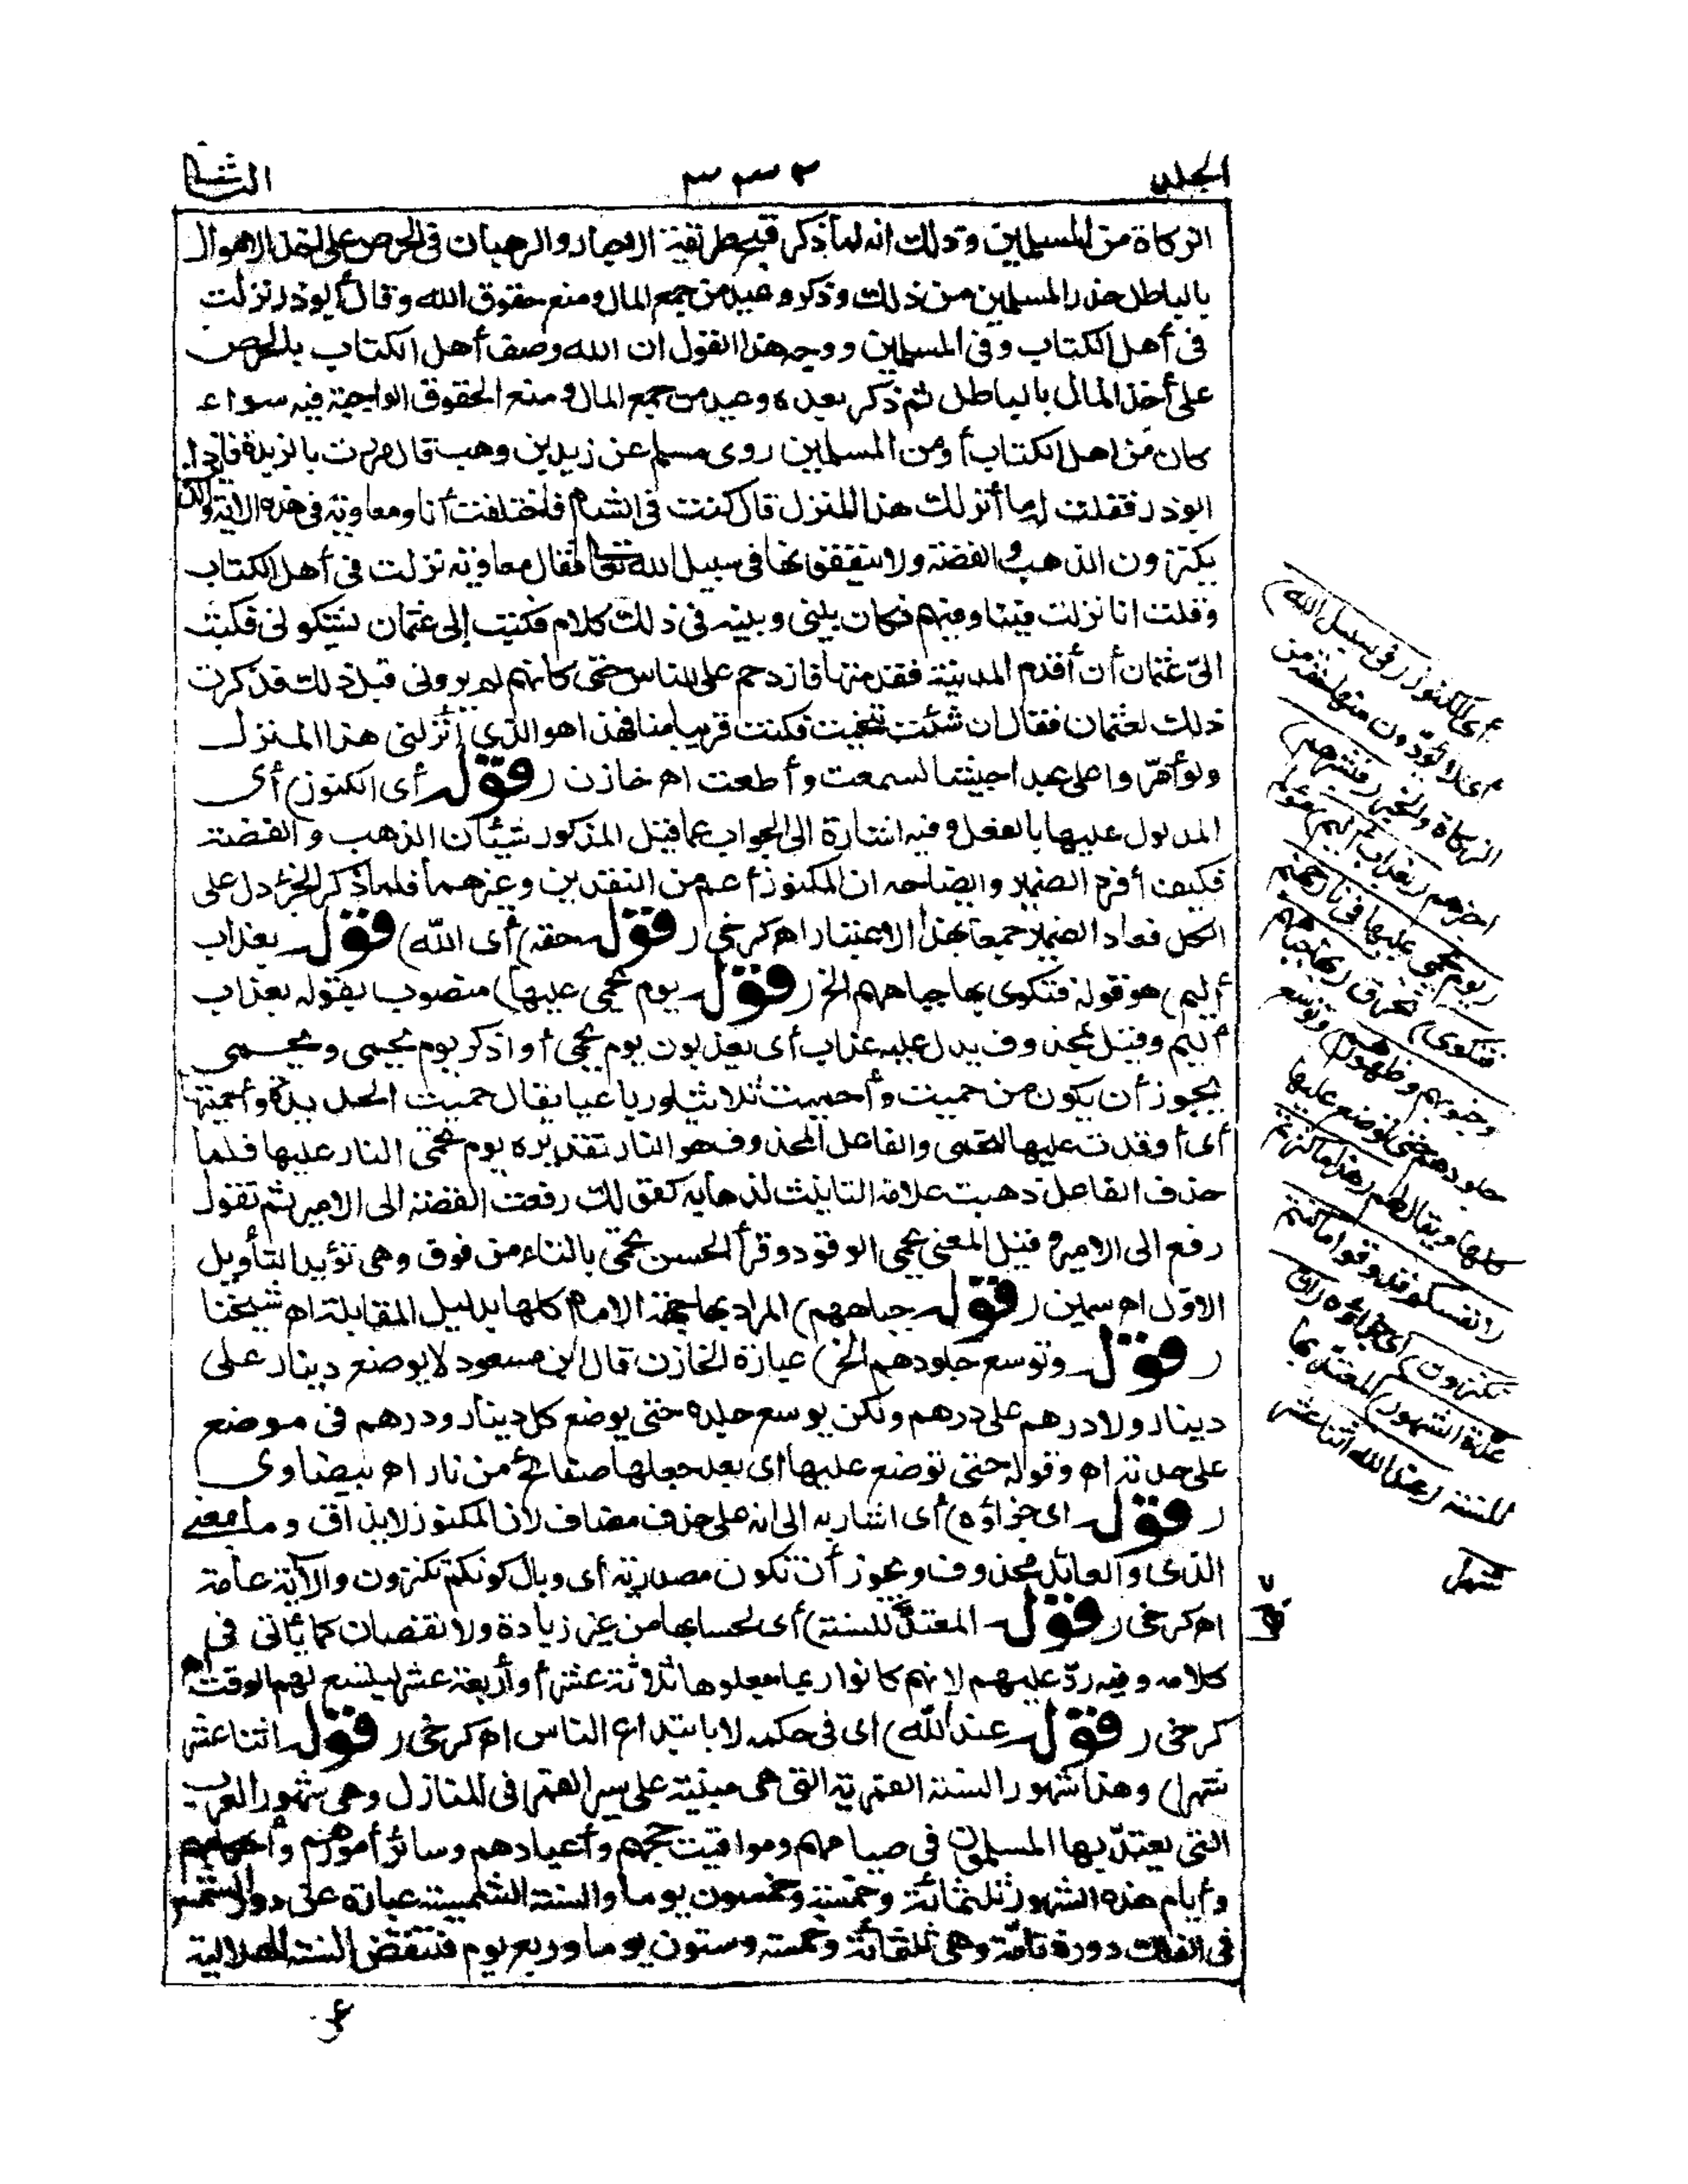 الجلد
٣٣٢
الثانى
الزكاة من المسلمين وذلك انه لما ذكر قبح طريقة الاحبار والرهبان فى الحرص على اخذ الاموال
بالباطل حذر المسلمين من ذلك وذكر وعيد من جمع المال ومنع حقوق الله وقال أبو ذر نزلت
فى أهل الكتاب وفى المسلمين ووجه هذا القول ان الله وصف أهل الكتاب بالحرص
على أخذ المال بالباطل ثم ذكر بعده وعيد من جمع المال ومنع الحقوق الواجبة فيه سواء
كان من اهل الكتاب أو من المسلمين روى مسلم عن زيد بن وهب قال مررت بالربذة فاذا
ابو ذر فقلت له ما أنزلك هذا المنزل قال كنت فى الشام فاختلفت أنا ومعاوية فى هذه الآية والذين
يكنزون الذهب والفضة ولا ينفقونها فى سبيل الله تعالى فقال معاوية نزلت فى أهل الكتاب
وقلت انا نزلت فينا وفيهم فكان بينى وبينه فى ذلك كلام فكتب إلى عثمان يشكونى فكتب
الىّ عثمان أن أقدم المدينة فقدمتها فازدحم على الناس حتى كأنهم لم يرونى قبل ذلك فذكرت
ذلك لعثمان فقال ان شئت تنحيت فكنت قريبا منا فهذا هو الذى أنزلنى هذا المنزل
ولو أمّروا على عبدا حبشيا لسمعت وأطعت اه خازن (قوله أى الكنوز) أى
المدلول عليها بالفعل وفيه اشارة الى الجواب عما قيل المذكور شيئان الذهب والفضة
فكيف أفرد الضمير وايضاحه ان المكنوز أعم من النقدين وغيرهما فلما ذكر الجزء دل على
الكل فعاد الضمير جمعا بهذا الاعتبار اه كرخى (قوله حقه) (أى الله) (قوله بعذاب
أليم) هو قوله فتكوى بها جباههم الخ (قوله يوم يحمى عليها) منصوب بقوله بعذاب
أليم وقيل بمحذوف يدل عليه عذاب أى يعذبون يوم يحمى أو اذكر يوم يحمى ويحمى
يجوز أن يكون من حميت وأحميت ثلاثيا ورباعيا يقال حميت الحديدة وأحميتها
أى أوقدت عليها لتحمى والفاعل المحذوف هو النار تقديره يوم تحمى النار عليها فلما
حذف الفاعل ذهبت علامة التأنيث لذهابه كقولك رفعت القصة الى الامير ثم تقول
رفع الى الامير وقيل المعنى يحمى الوقود وقرأ الحسن تحمى بالتاء من فوق وهى تؤيد التأويل
الاوّل اه سمين (قوله جباههم) المراد بها جهة الامام كلها بدليل المقابلة اه شيخنا
(قوله وتوسع جلودهم الخ) عبارة الخازن قال ابن مسعود لا يوضع دينار على
دينار ولا درهم على درهم ولكن يوسع جلده حتى يوضع كل دينار ودرهم فى موضع
على حدته اه وقوله حتى توضع عليها اى بعد جعلها صفائح من نار اه بيضاوى
(قوله اى جزاؤه) أى اشار به الى انه على حذف مضاف لان المكنوز لا يذاق وما بمعنى
الذى والعائد محذوف ويجوز أن تكون مصدرية أى وبال كونكم تكنزون والآية عامة
اه كرخى (قوله المعتدّ للسنة) أى لحسابها من غير زيادة ولا نقصان كما يأتى فى
كلامه وفيه ردّ عليهم لانهم كانوا ربما جعلوها ثلاثة عشر أو أربعة عشر ليتسع لهم الوقت اه
كرخى (قوله عند الله) اى فى حكمه لا بابتداع الناس اه كرخى (قوله اثنا عشر
شهرا) وهذا شهور السنة القمرية التى هى مبنية على سير القمر فى المنازل وهى شهور العرب
التى يعتدّ بها المسلمون فى صيامهم ومواقيت حجهم وأعيادهم وسائر أمورهم وأحكامهم
وأيام هذه الشهور ثلثمائة وخمسة وخمسون يوما والسنة الشمسية عبارة عن دور الشمس
فى الفلك دورة تامّة وهى ثلثمائة وخمسة وستون يوما وربع يوم فتنقص السنة الهلالية
أى الكنوز (فى سبيل الله)
أى لا يؤدّون منها حقه من
الزكاة والخير (فبشرهم)
اخبرهم (بعذاب اليم) مؤلم
(يوم يحمى عليها فى نار جهنم
فتكوى) تحرق (بها جباههم
وجنوبهم وظهورهم) وتوسع
جلودهم حتى توضع عليها
كلها ويقال لهم (هذا ما كنزتم
لانفسكم فذوقوا ما كنتم
تكنزون) اى جزاؤه (ان
عدّة الشهور) المعتدّ بها
للسنة (عند الله اثنا عشر
شهرا